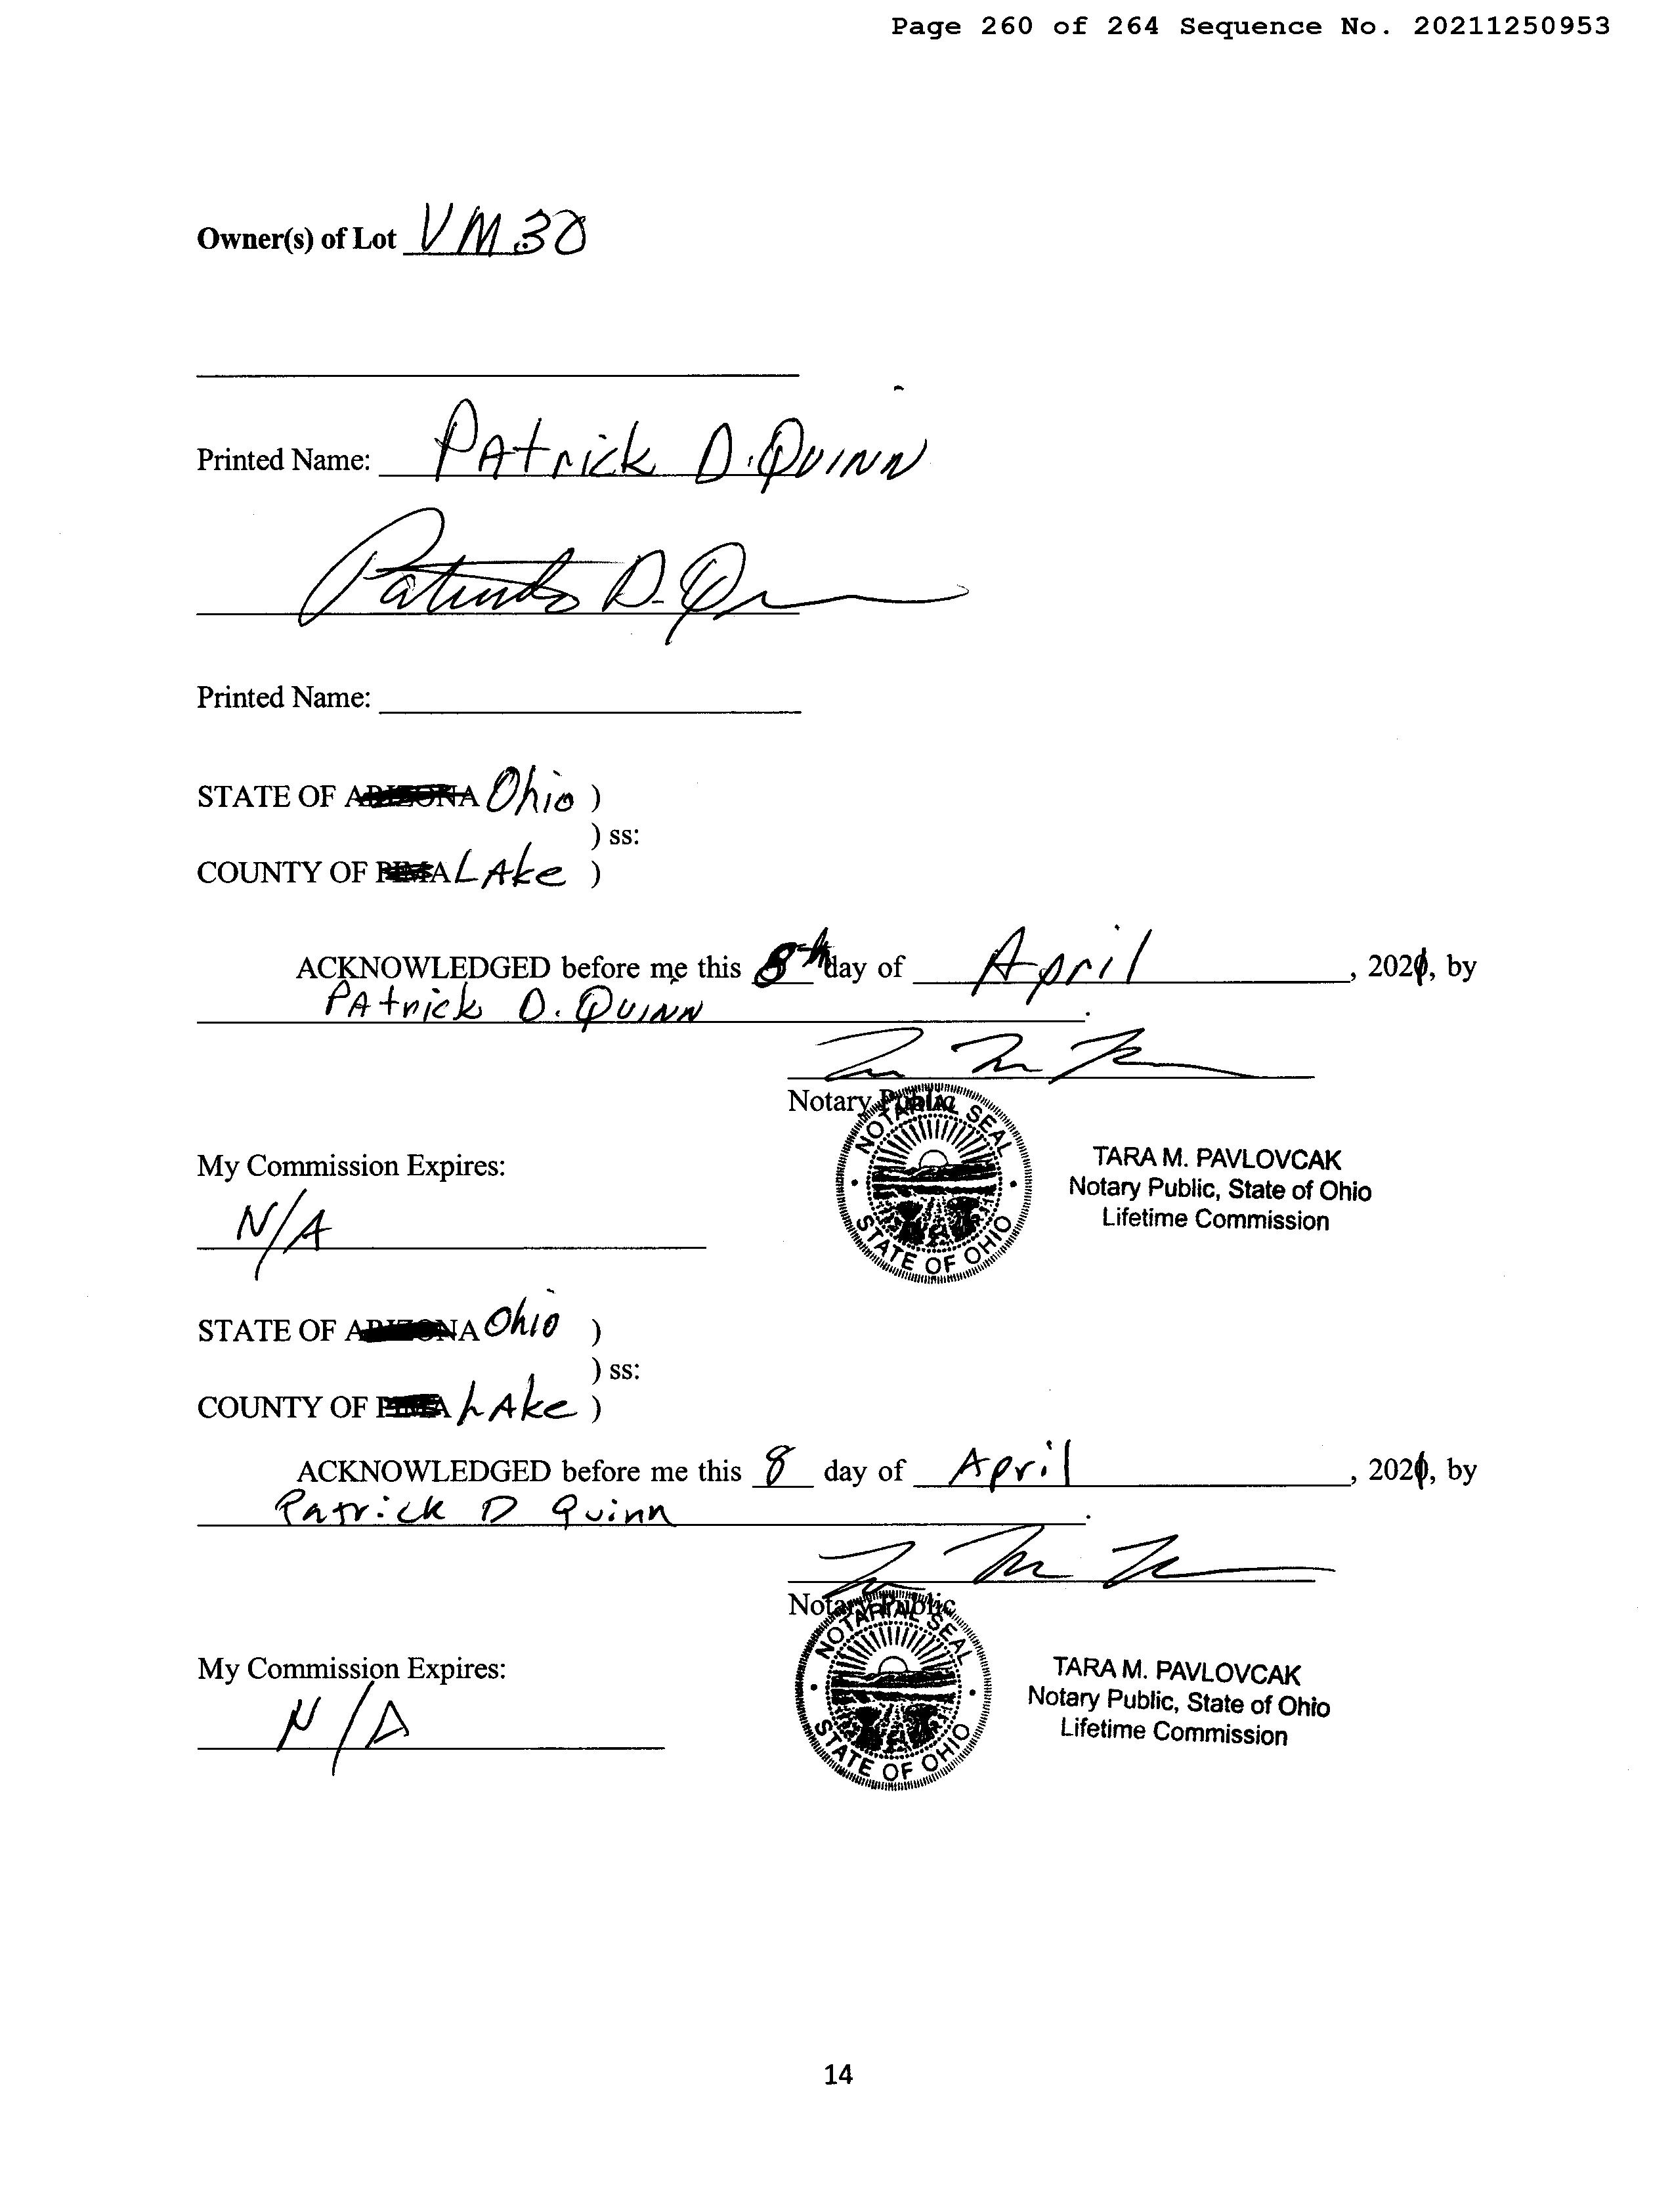 Page 260 of 264 Sequence No. 20211250953
Owner(s) of Lot VM30
Printed Name: PAtrick D. QUINN
Patrick D. Q
Printed Name:
STATE OF ARIZONA Ohio )
) ss:
COUNTY OF PIMA LAke )
ACKNOWLEDGED before me this 8th day of April, 2021, by
PAtrick D. QUINN.
Notary Public
NOTARIAL SEAL
STATE OF OHIO
TARA M. PAVLOVCAK
Notary Public, State of Ohio
Lifetime Commission
My Commission Expires:
N/A
STATE OF ARIZONA Ohio )
) ss:
COUNTY OF PIMA LAke )
ACKNOWLEDGED before me this 8 day of April, 2021, by
Patrick D Quinn.
Notary Public
NOTARIAL SEAL
STATE OF OHIO
TARA M. PAVLOVCAK
Notary Public, State of Ohio
Lifetime Commission
My Commission Expires:
N/A
14